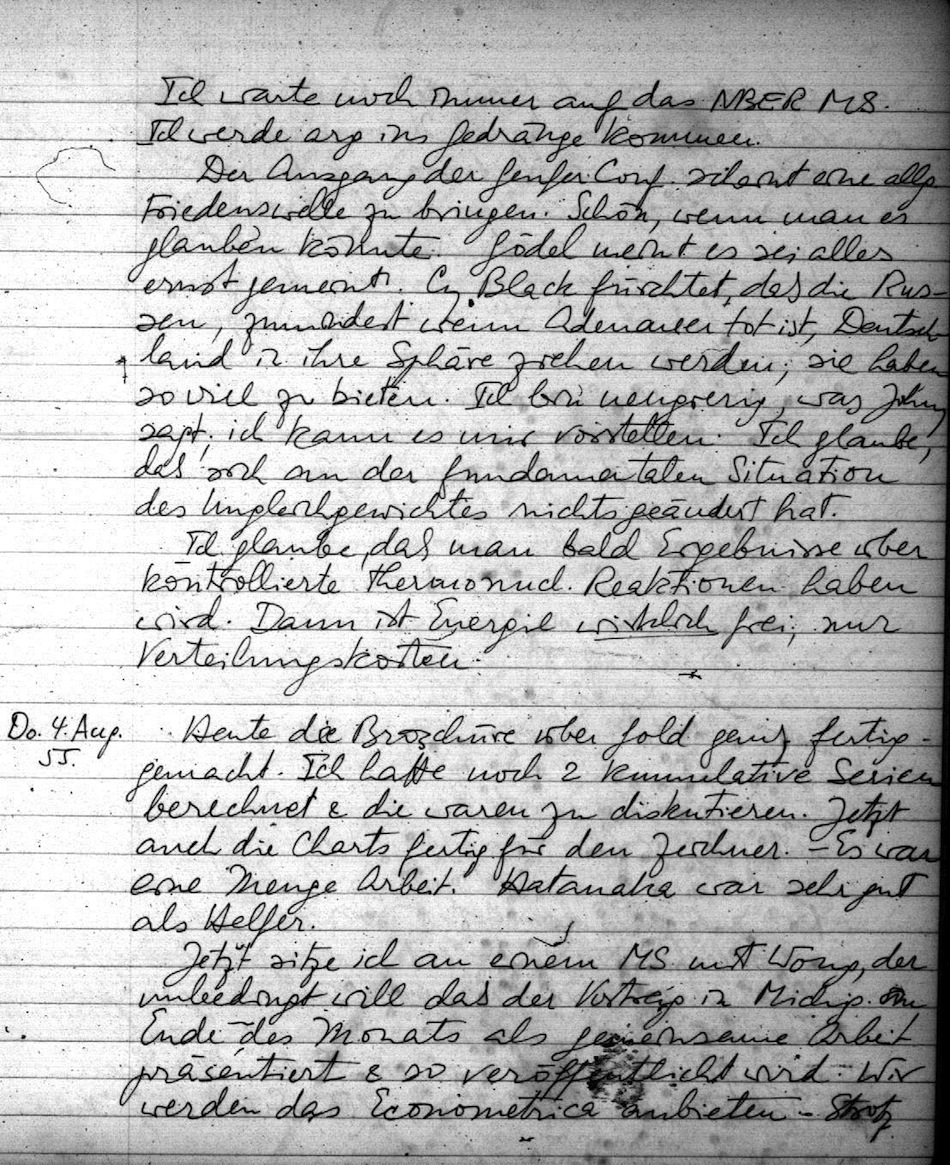 Ich warte noch immer auf das NBER MS.
Ich werde arg ins Gedränge kommen.
Der Ausgang der Genfer Conf. scheint eine allg.
Friedenswelle zu bringen. Schön, wenn man es
glauben könnte. Gödel meint es sei alles
ernst gemeint. Cy. Black fürchtet, dass die Rus-
sen, zumindest wenn Adenauer tot ist, Deutsch-
land in ihre Sphäre ziehen werden; sie haben
so viel zu bieten. Ich bin neugierig, was Johnny
sagt; ich kann es mir vorstellen. Ich glaube,
dass sich an der fundamentalen Situation
des Ungleichgewichtes nichts geändert hat.
Ich glaube, dass man bald Ergebnisse über
kontrollierte thermonucl. Reaktionen haben
wird. Dann ist Energie wirklich frei; nur
Verteilungskosten.
Do. 4. Aug.
55.
Heute die Broschüre über Gold ganz fertig-
gemacht. Ich hatte noch 2 kumulative Serien
berechnet & die waren zu diskutieren. Jetzt
auch die Charts fertig für den Zeichner. – Es war
eine Menge Arbeit. Hatanaka war sehr gut
als Helfer.
Jetzt sitze ich an einem MS mit Wong, der
unbedingt will dass der Vortrag in Michig. am
Ende des Monats als gemeinsame Arbeit
präsentiert & so veröffentlicht wird. Wir
werden das Econometrica anbieten – Strotz